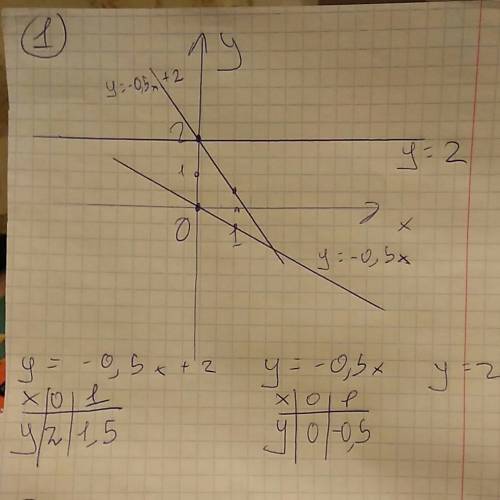 1
y
y=-0,5x+2
2
y=2
1
0
1
x
y=-0,5x
y = -0,5x+2
x 0 1
y 2 1,5
y=-0,5x
x 0 1
y 0 -0,5
y=2